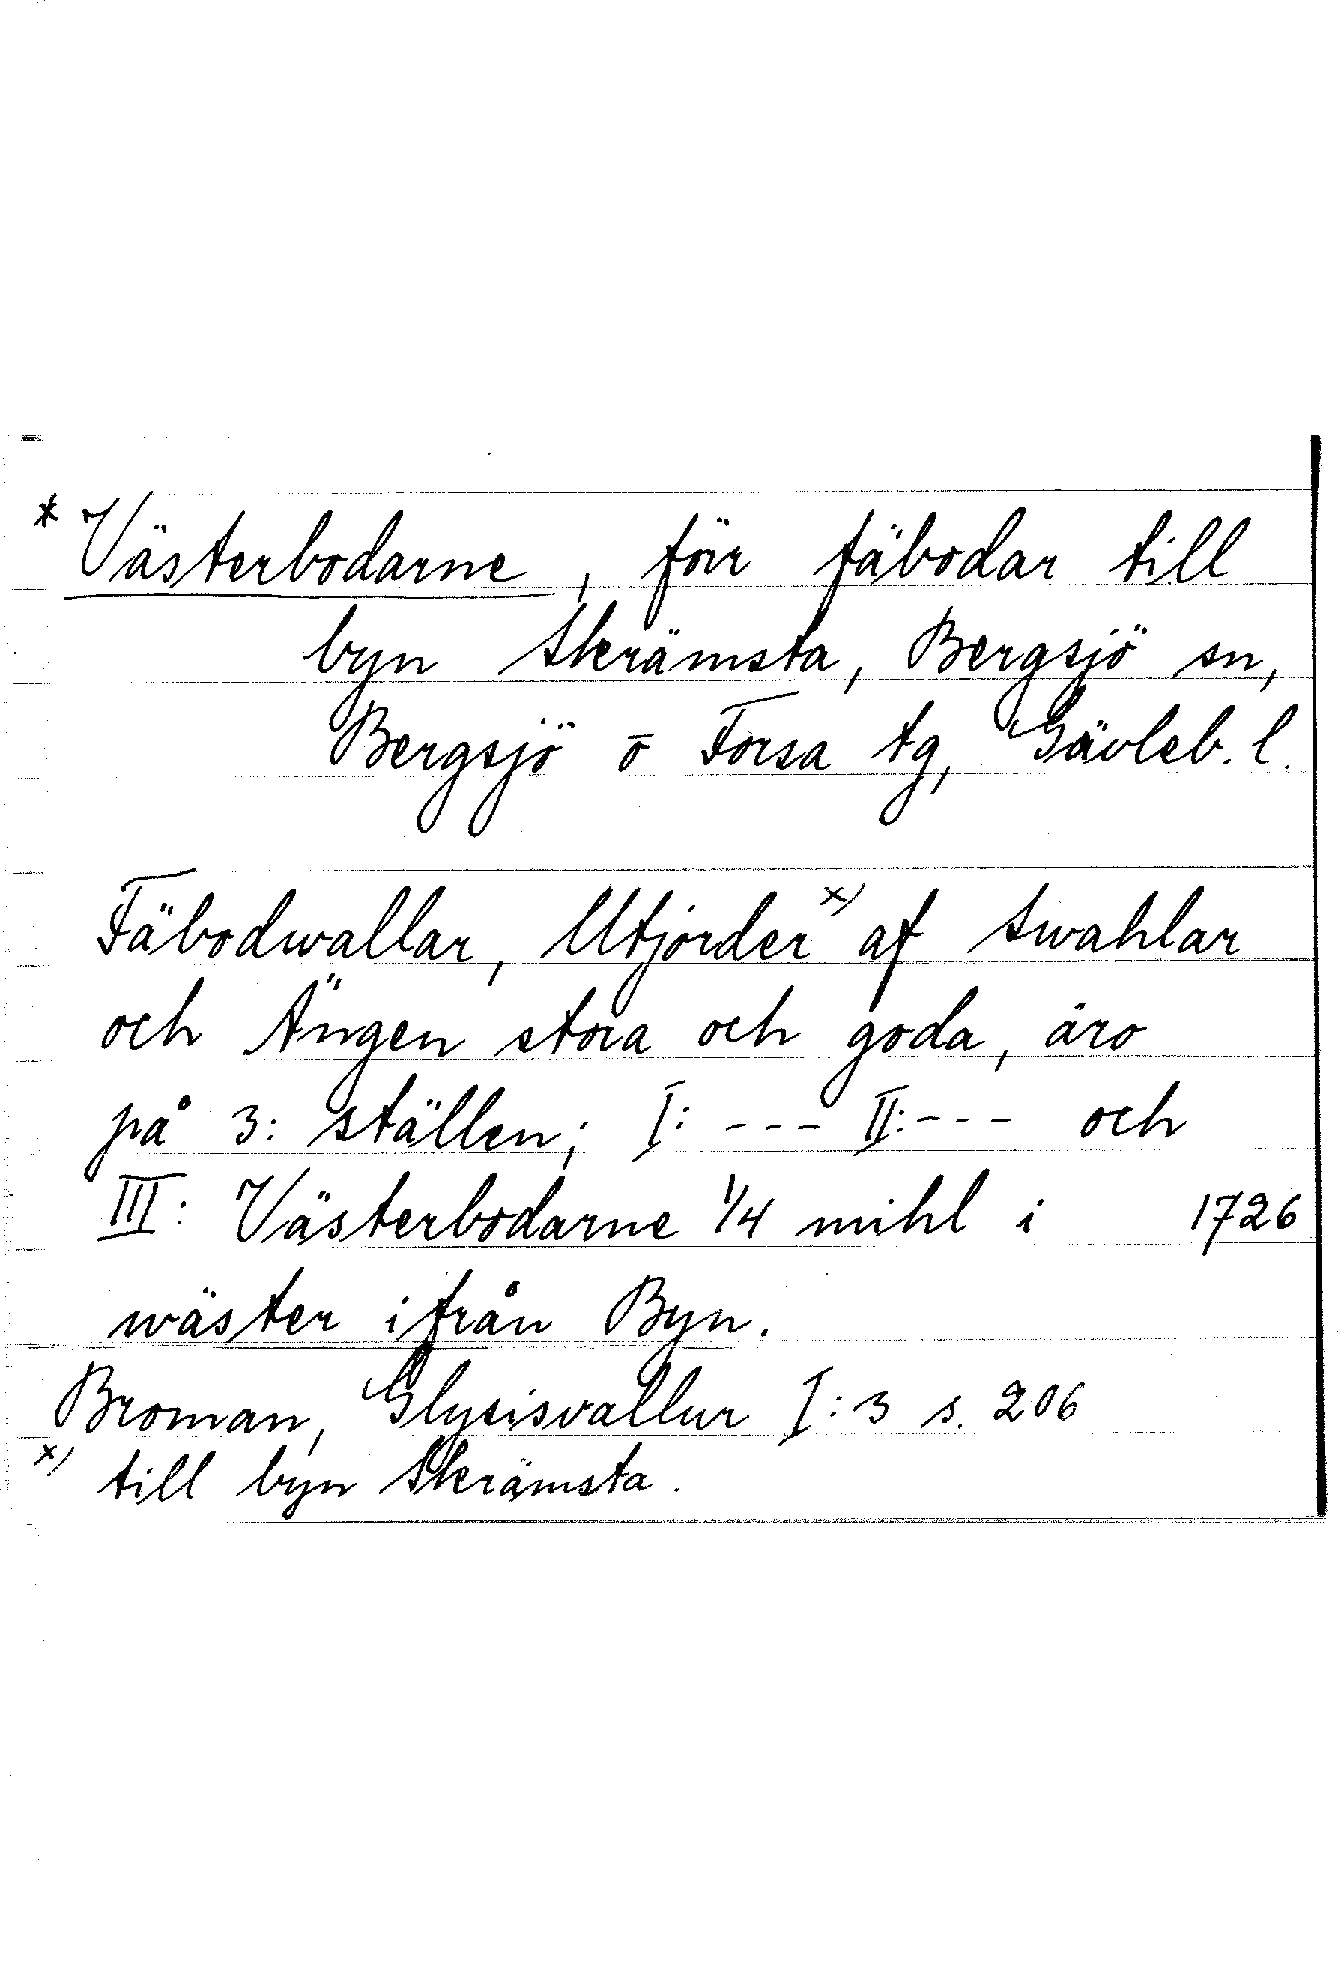 * Västerbodarne, förr fäbodar till
byn Skrämsta, Bergsjö sn,
Bergsjö o Forsa tg, Gävleb. l.
Fäbodwallar, Utjorder x) af swahlar
och Ängen stora och goda, äro
på 3: ställen; I: --- II: --- och
III: Västerbodarne 1/4 mihl i 1726
wäster ifrån Byn.
Broman, Glysisvallur I:3 s. 206
x) till byn Skrämsta.